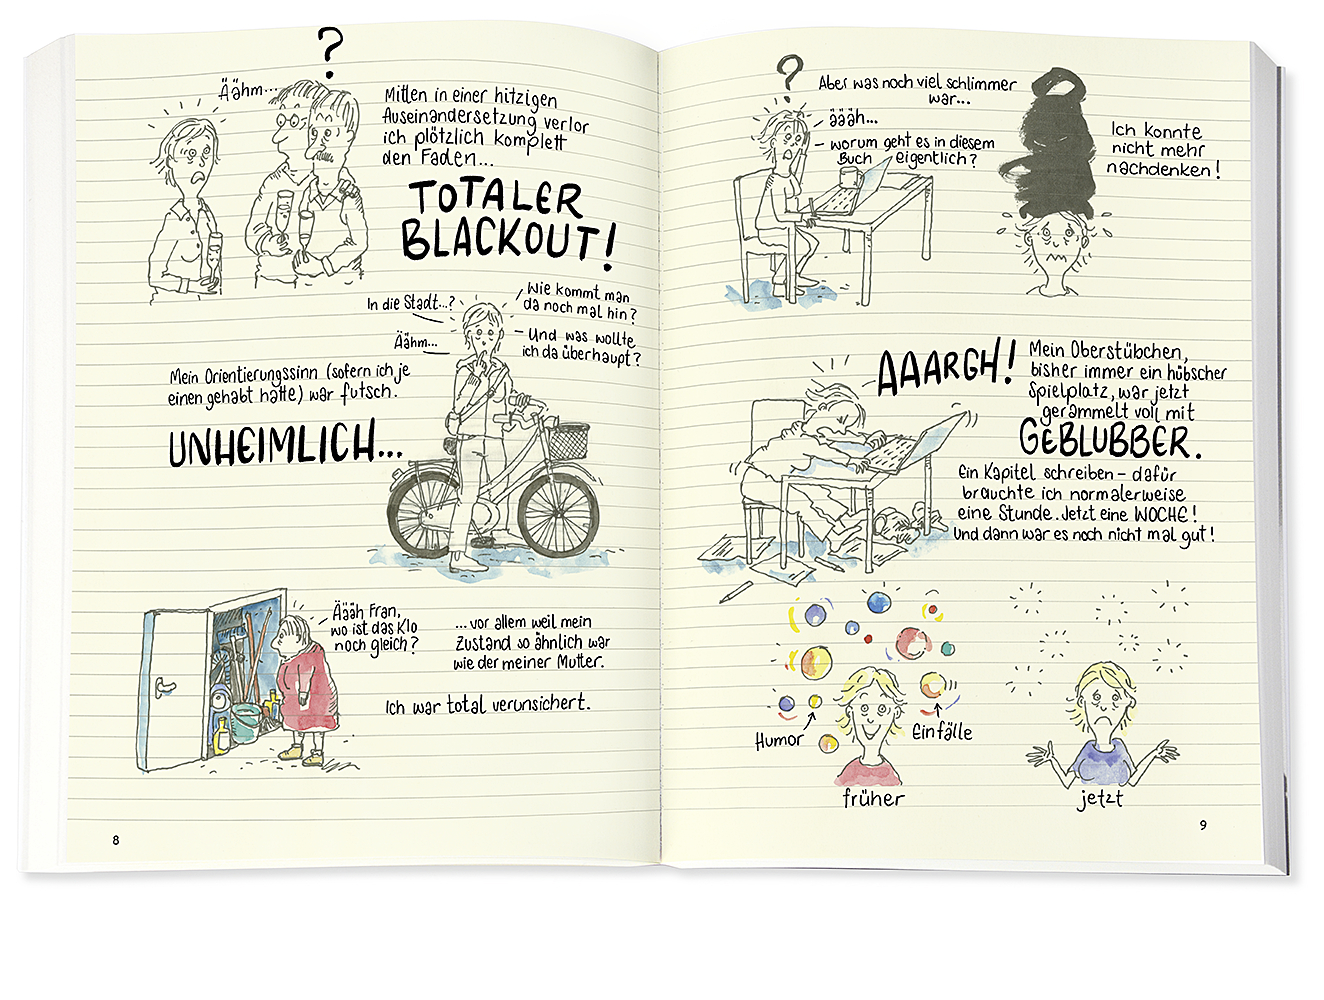 ?
Äähm...
Mitten in einer hitzigen
Auseinandersetzung verlor
ich plötzlich komplett
den Faden...
TOTALER
BLACKOUT!
In die Stadt...?
Äähm...
Wie kommt man
da noch mal hin?
– Und was wollte
ich da überhaupt?
Mein Orientierungssinn (sofern ich je
einen gehabt hatte) war futsch.
UNHEIMLICH...
Äääh Fran,
wo ist das Klo
noch gleich?
...vor allem weil mein
Zustand so ähnlich war
wie der meiner Mutter.
Ich war total verunsichert.
8
?
Aber was noch viel schlimmer
war...
– äääh...
– worum geht es in diesem
Buch eigentlich?
Ich konnte
nicht mehr
nachdenken!
AAARGH!
Mein Oberstübchen,
bisher immer ein hübscher
Spielplatz, war jetzt
gerammelt voll mit
GEBLUBBER.
Ein Kapitel schreiben – dafür
brauchte ich normalerweise
eine Stunde. Jetzt eine WOCHE!
Und dann war es noch nicht mal gut!
Humor
Einfälle
früher
jetzt
9